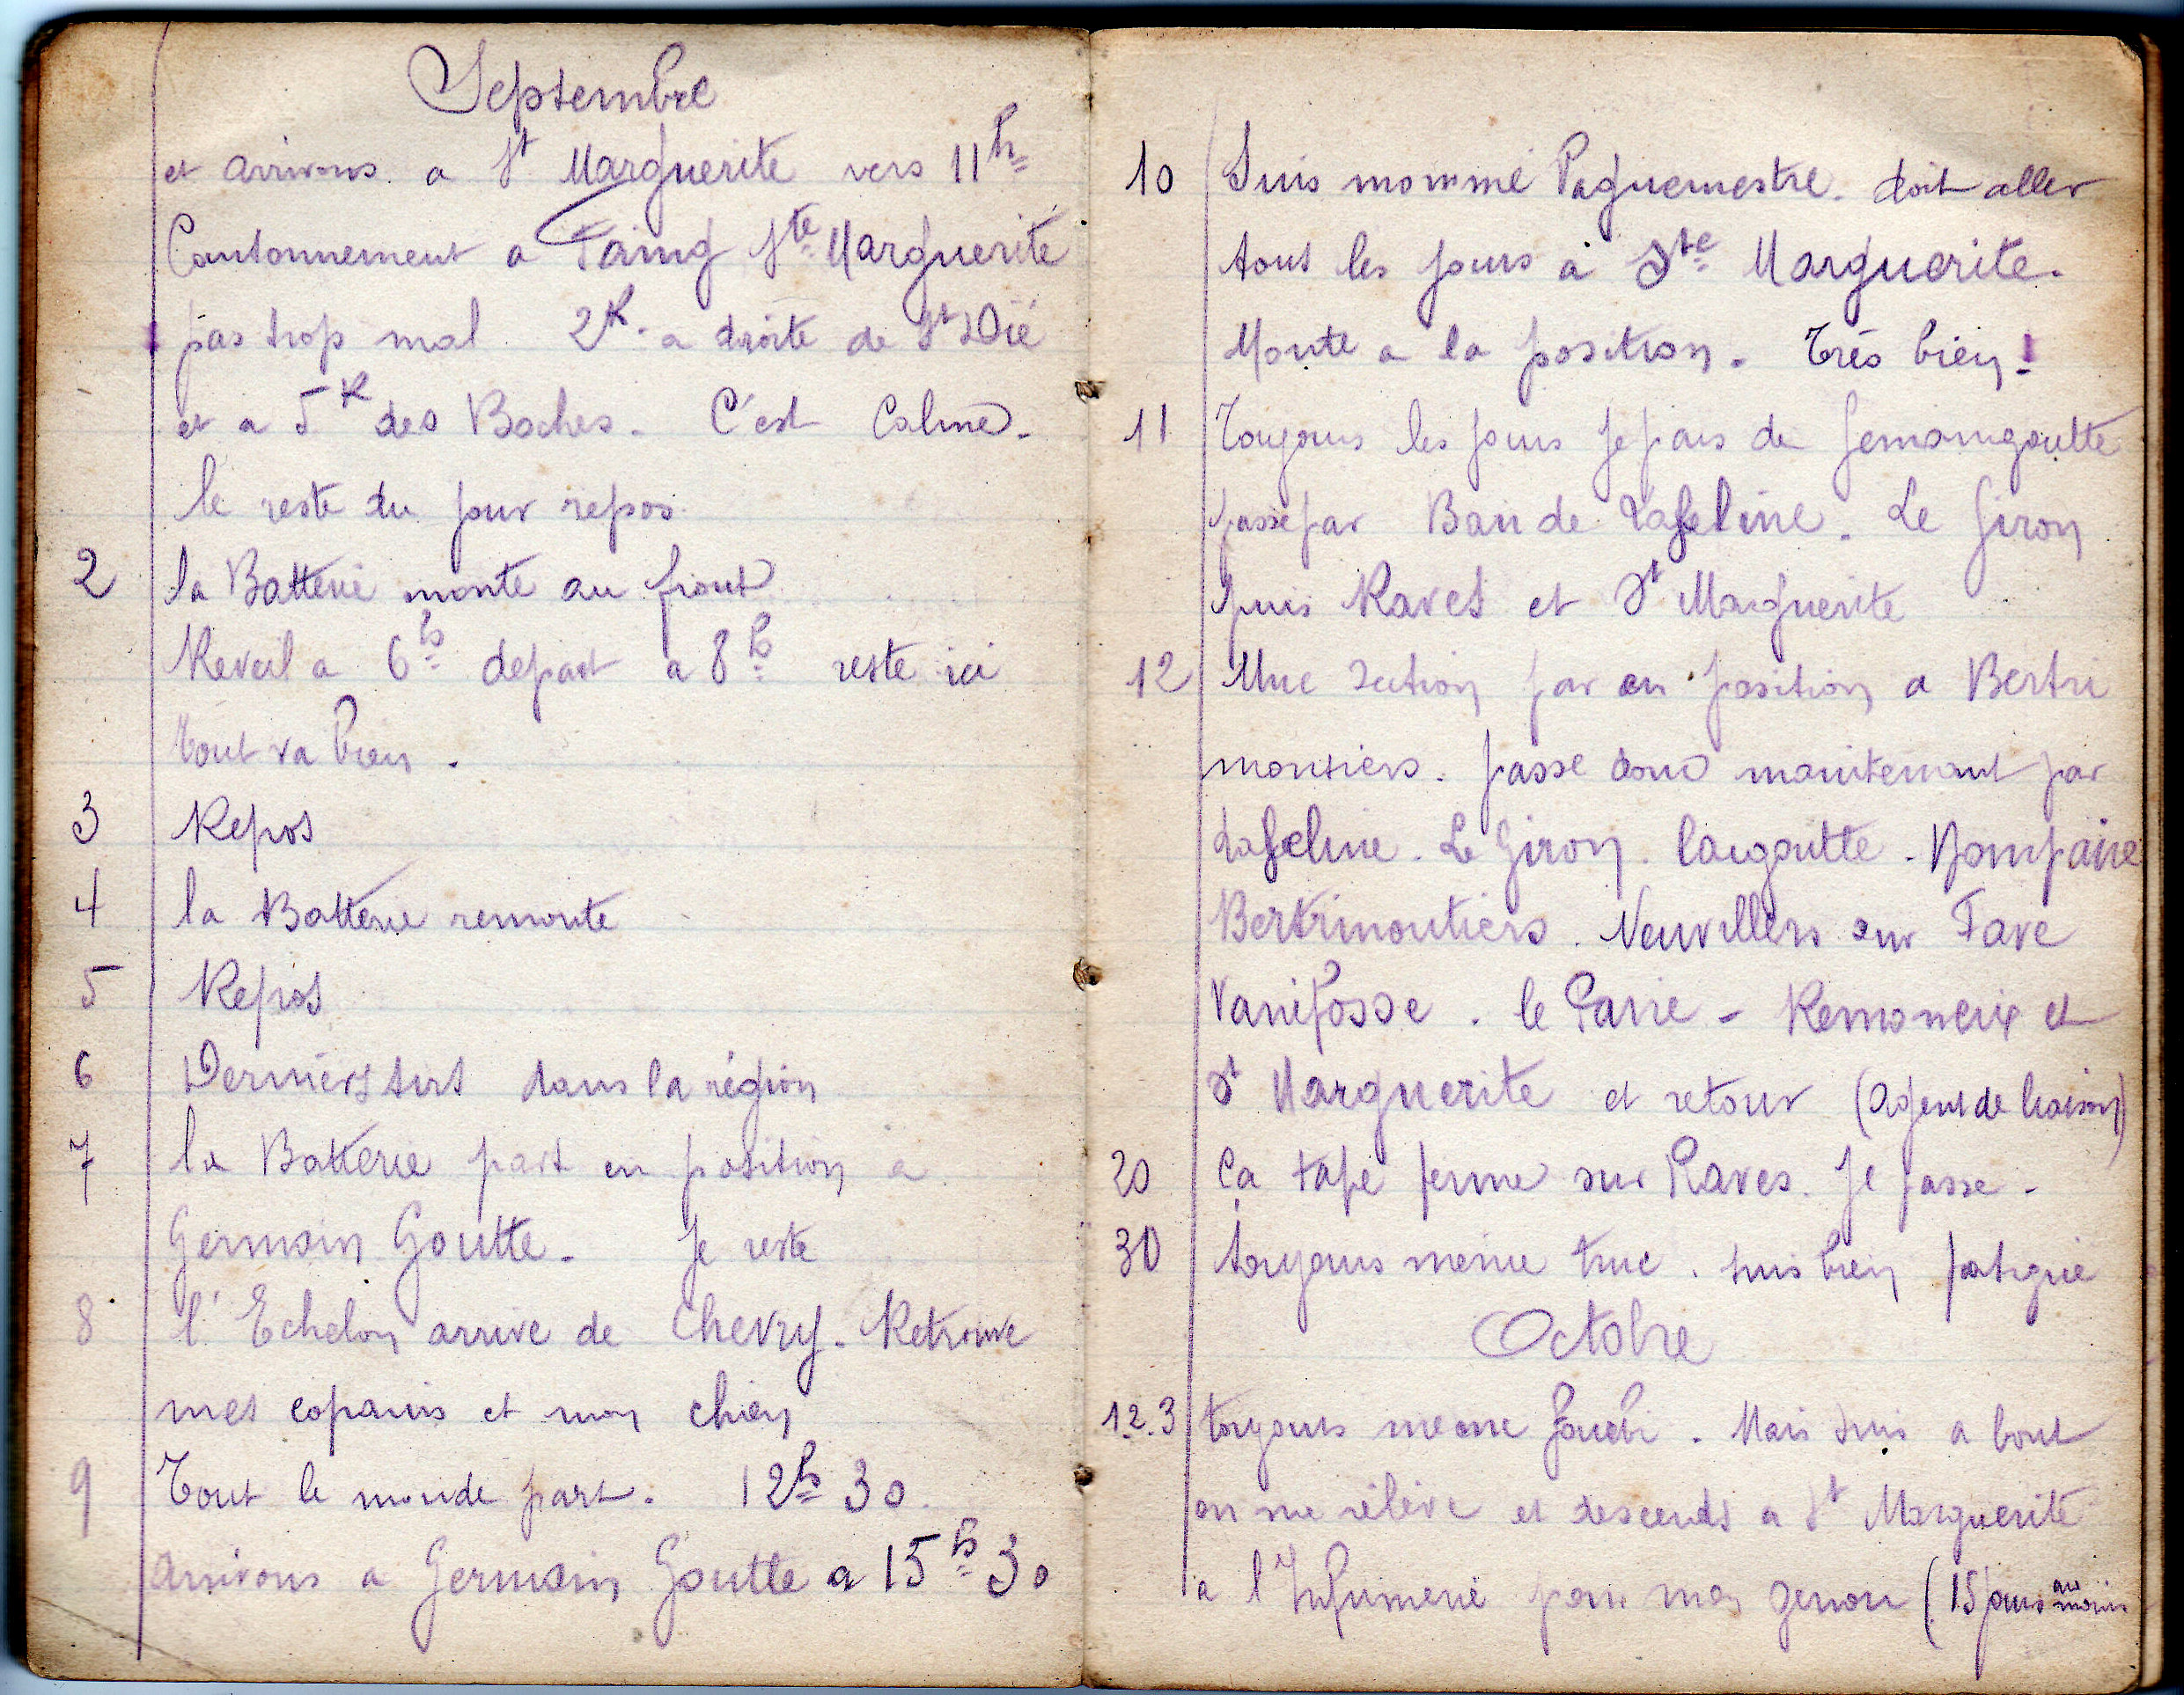 Septembre
et arrivons a St Marguerite vers 11h
Cantonnement a Faing Ste Marguerite
pas trop mal. 2K. a droite de St Dié
et a 5K des Boches. C'est Calme.
le reste du jour repos.
2 la Batterie monte au front
Reveil a 6h depart a 8h reste ici
tout va bien.
3 Repos
4 la Batterie remonte
5 Repos
6 Derniers tirs dans la région
7 la Batterie part en position a
Germain Goutte. Je reste
8 l'Echelon arrive de Chevry. Retrouve
mes copains et mon chien
9 Tout le monde part. 12h 30.
arrivons a Germain Goutte a 15h 30
10 Suis nommé Vaguemestre. doit aller
tous les jours à Ste Marguerite.
Monte a la position. Très bien!
11 Toujours les jours je pars de Gemaingoutte
passe par Ban de Laveline. Le Giron
puis Raves et St Marguerite
12 Une section par en position a Bertri
moutiers. passe donc maintenant par
Laveline. Le Giron. Laigoutte. Vompaire
Bertrimoutiers. Neuvillers sur Fave
Vanifosse. le Paire - Remomeix et
St Marguerite et retour (Agent de liaison)
20 Ca tape ferme sur Raves. Je passe.
30 toujours meme truc. suis bien fatigué
Octobre
1.2.3 toujours meme fourbi. Mais suis a bout
on me relève et descends a St Marguerite
a l'Infirmerie pour mon genou (15 jours au moins